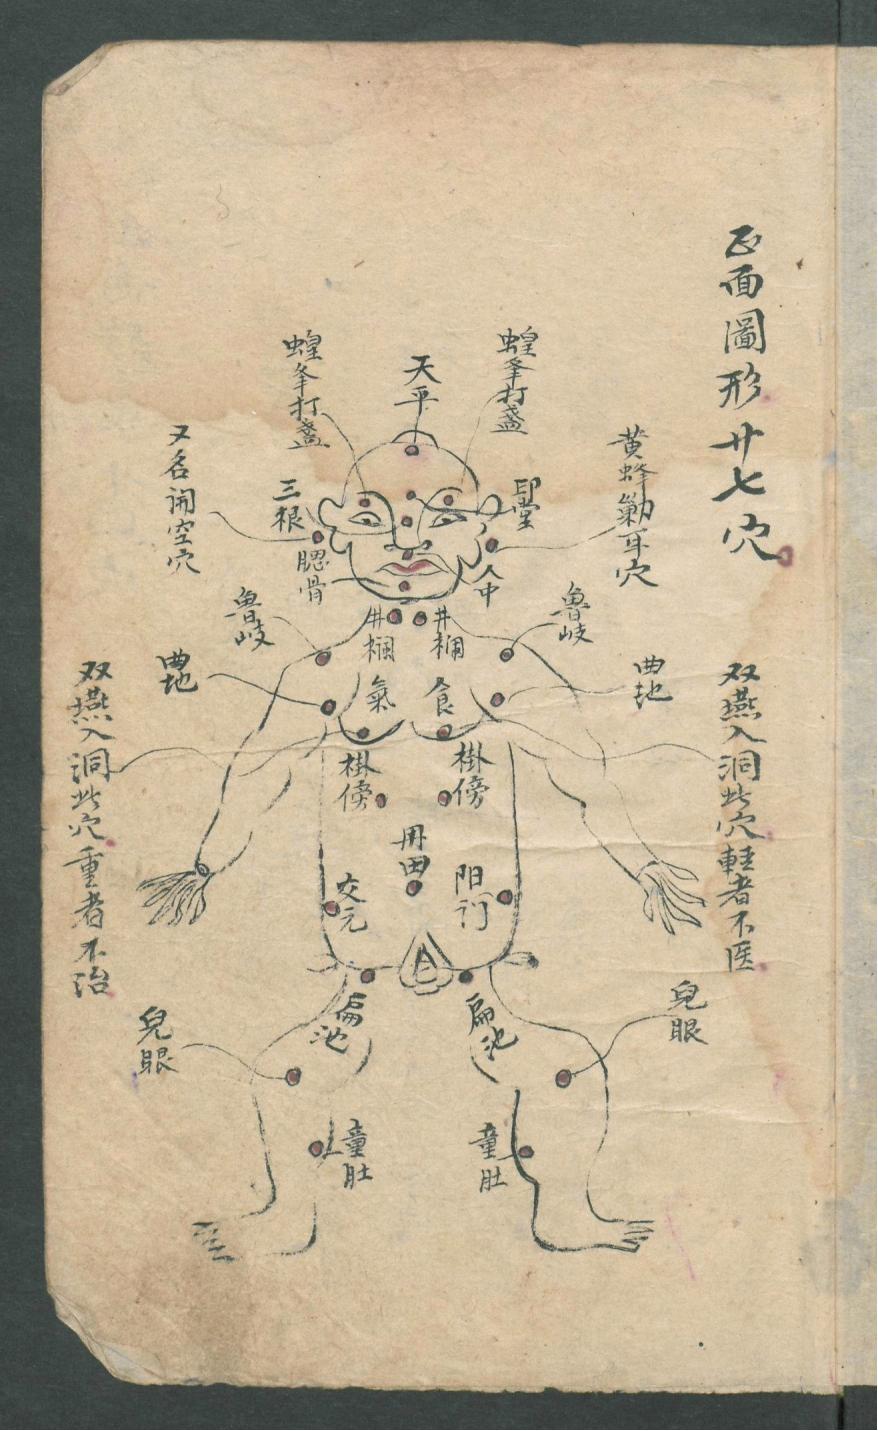 正面圖形廿七穴
天平
蝗夆打盞
蝗夆打盞
黄蜂剿耳穴
又名闹空穴
印堂
三根
腮骨
人中
魯岐
魯岐
井欄
井欄
曲地
曲地
食
氣
双燕入洞此穴軽者不医
双燕入洞此穴重者不治
掛傍
掛傍
丹田
阳门
交元
扁池
扁池
兒眼
兒眼
童肚
童肚